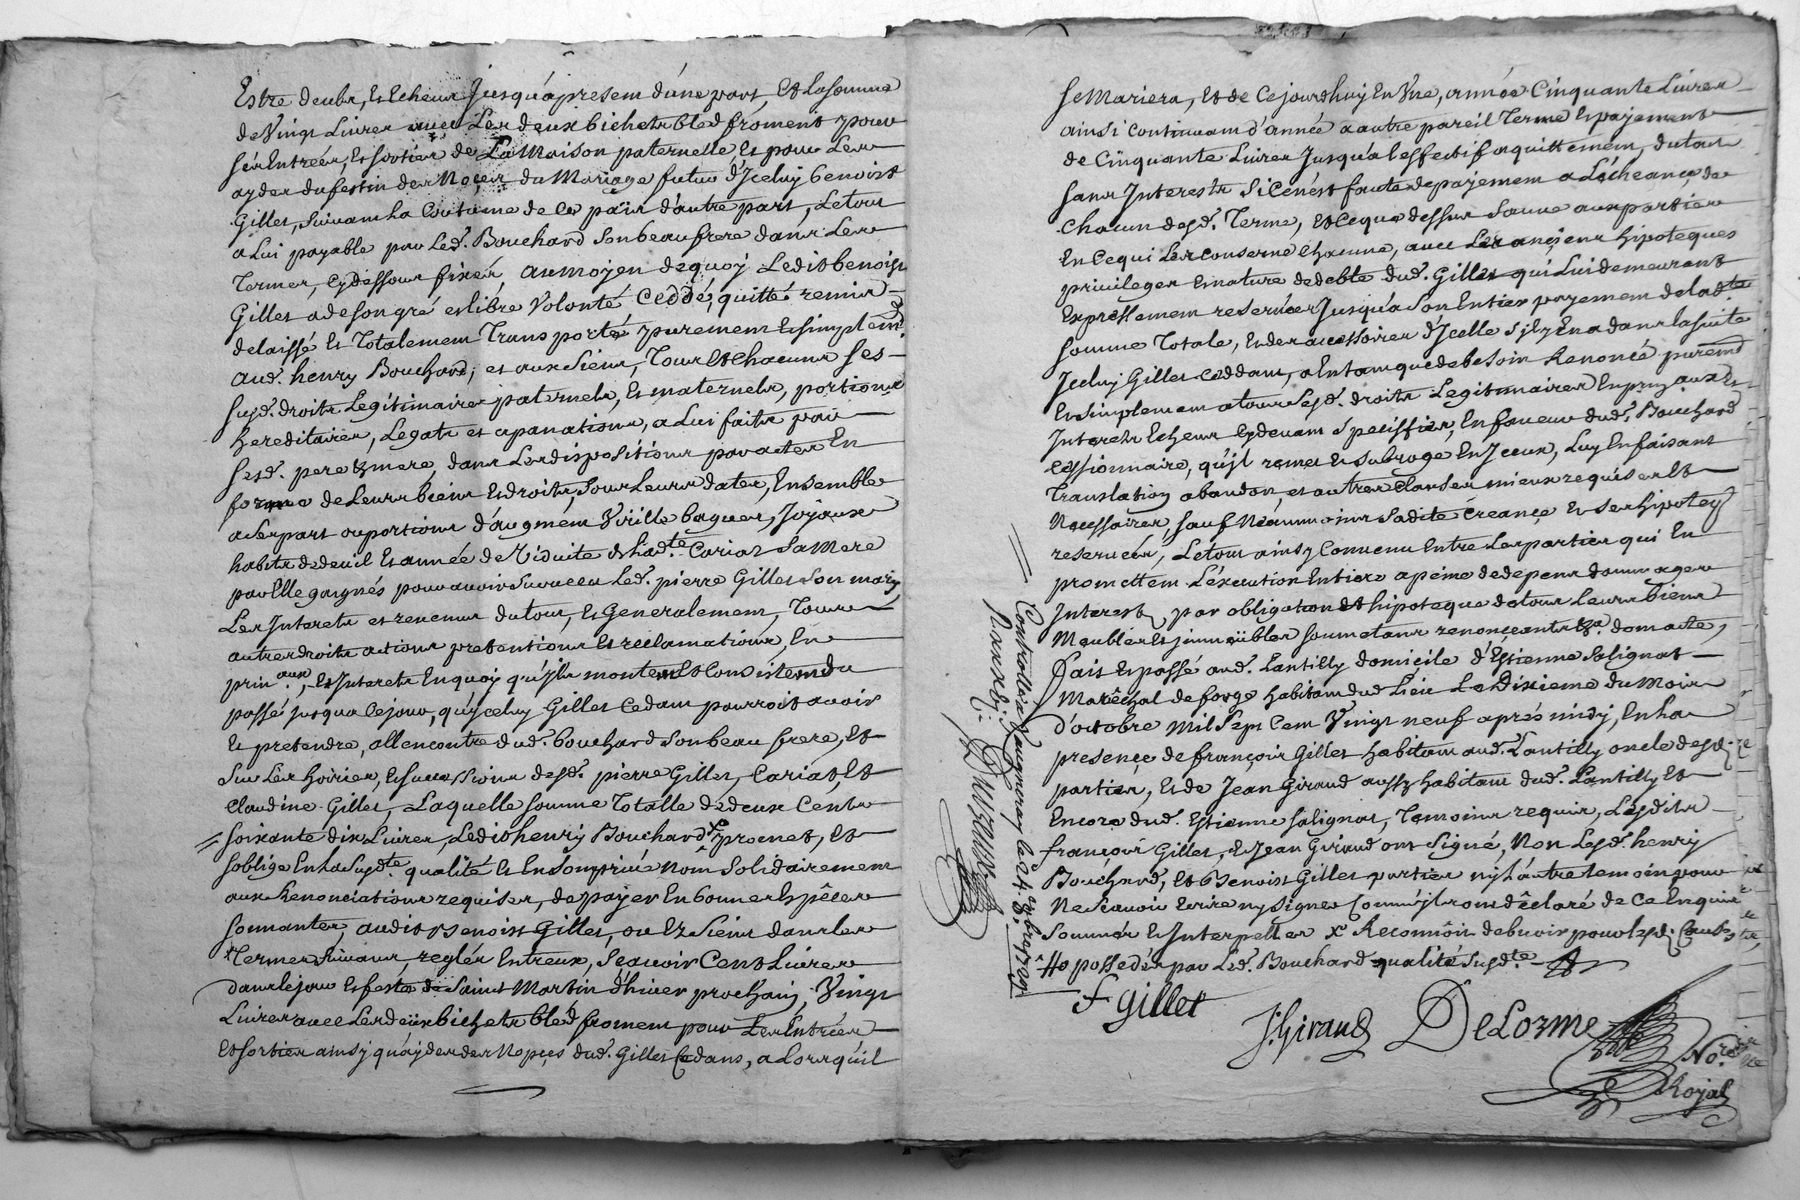 Estre deubs, Et Echeus Jusquápresem d'úne part, Et La somme
de Vingt Livres avec Les deux bichets bled froment pour
ses Entrées, Et sorties de La Maison paternelle Et pour Les
ayder du festin des Noçes du Mariage futur d'Jceluy benoist
Gillet, suivant la Coutume de Ce païs d'autre part, Le tout
a Lui payable par Led. Bouchard son beau frere dans Les
Termes, Cy dessous fixés, au moyen de quoy Ledit benoist
Gillet a de son gré et libre Volonté Ceddé, quitté remis
delaissé Et Totalement Transporté purement Et simplemt.
aud. henry Bouchard, et aux siens, Tous Et Chacuns ses
susd. droits Legitimaires paternels, Et maternels, portions
hereditaires, Legats et apanations, a Lui faits par
sesd. pere & mere, dans Les dispositions par actes En
forme de Leurs biens Et droits, sous Leurs dates, Ensemble
a Ses part ou portions d'augment Virille bagues, Joyaux
habits de deuil Et année de Viduite de lad.te Cariat sa Mere
par Elle gaignés pour avoir survecu Led. pierre Gillet son mary
Les Interets et revenus du tout, Et Generalement, Tous
autres droits actions pretentions Et reclamations, En
prin.aux, Et Interets En quoy qu'ils montent Et Consistent du
passé jusqua Ce jour, qu'yceluy Gillet Cedant pourroit avoir
Et pretendre, allencontre dud. bouchard son beau frere, Et
sur Les hoiries, Et successions desd. pierre Gillet, Cariat, Et
Claudine Gillet, Laquelle somme Totalle de deux Cents
soixante dix Livres, Ledit henry Bouchard promet, Et
soblige En La susd.te qualité Et En son privé Nom solidairement
aux Renonciations requises, de payer En bonnes Espêces
sonnantes audit Benoist Gillet, ou Et siens dans Les
Termes suivans, reglés Entreux, sçavoir Cent Livres
dans Le jour Et feste de saint Martin d'hiver prochain, Vingt
Livres avec Les deux bichets bled froment pour Les Entrées
Et sorties ainsy qu'ayder des Nopces dud. Gillet Cedans, a Lors qu'il
se Mariera, Et de Ce jourdhuy En Vne, année Cinquante Livres
ainsi Continuam d'année a autre pareil Terme Et payement
de Cinquante Livres Jusqu'a l'effectif aquittement, du tout
sans Interests si Ce n'est faute de payement a L'écheance de
Chacun desd. Terme, Et Ce que dessus sauve aux parties
En Ce qui Les Conserne Chacune, avec Les ançiens hipoteques
privileges Et nature de debte dud. Gillet qui Lui demeurent
Expressement reservées Jusqu'a son Entier payement de lad.te
somme Totale, Et des accessoires d'Jcelle s'il y En a dans la suite
Jceluy Gillet Ceddant, a En tant que de besoin Renoncé puremt
Et simplement a tous sesd. droits Legitimaires En prin.aux Et
Interets Echeus Cy devant speciffiés, En faveur dud. Bouchard
Cessionnaire, qu'jl remet Et subroge En Jceux, Luy En faisant
Translation abandon, et autres Clauses mieux requises Et
Necessaires, sauf Neanmoins sadite Créançe Et ses hipoteq
reservées, Le tout ainsy Convenu Entre Les parties qui En
promettent L'éxecution Entiere a peine de depens dommages
Interest, par obligation Et hipoteque de tous Leurs biens
Meubles Et jmmeübles soumetans renonçeants &a. dont acte,
fait Et passé aud. Lantilly domicile d'Estienne Solignat
Marêchal de forge habitant dud Lieu Le Dixieme du Mois
d'octobre Mil sept Cent Vingt neuf aprés midy, En la
presençe de françois Gillet habitant aud. Lantilly oncle desd.
parties, Et de Jean Giraud aussy habitant dud. Lantilly Et
Encore dud. Estienne Solignat, Temoins requis, Lesdits
françois Gillet, Et Jean Giraud ont signé, Non Lesd. henry
Bouchard, Et Benoist Gillet parties nj L'autre temoin pour
Ne sçavoir Ecrire ny signer Comm'jls ont dêclaré de Ce Enquis
sommés Et Interpellés x Reconnoit debvoir pour lesd. Causes
possedés par Led. Bouchard qualité susd.te
F Gillet
J. Giraud
DeLorme
No.re
Royal
Controllé a Vaugneray le 24. 8.bre 1729.